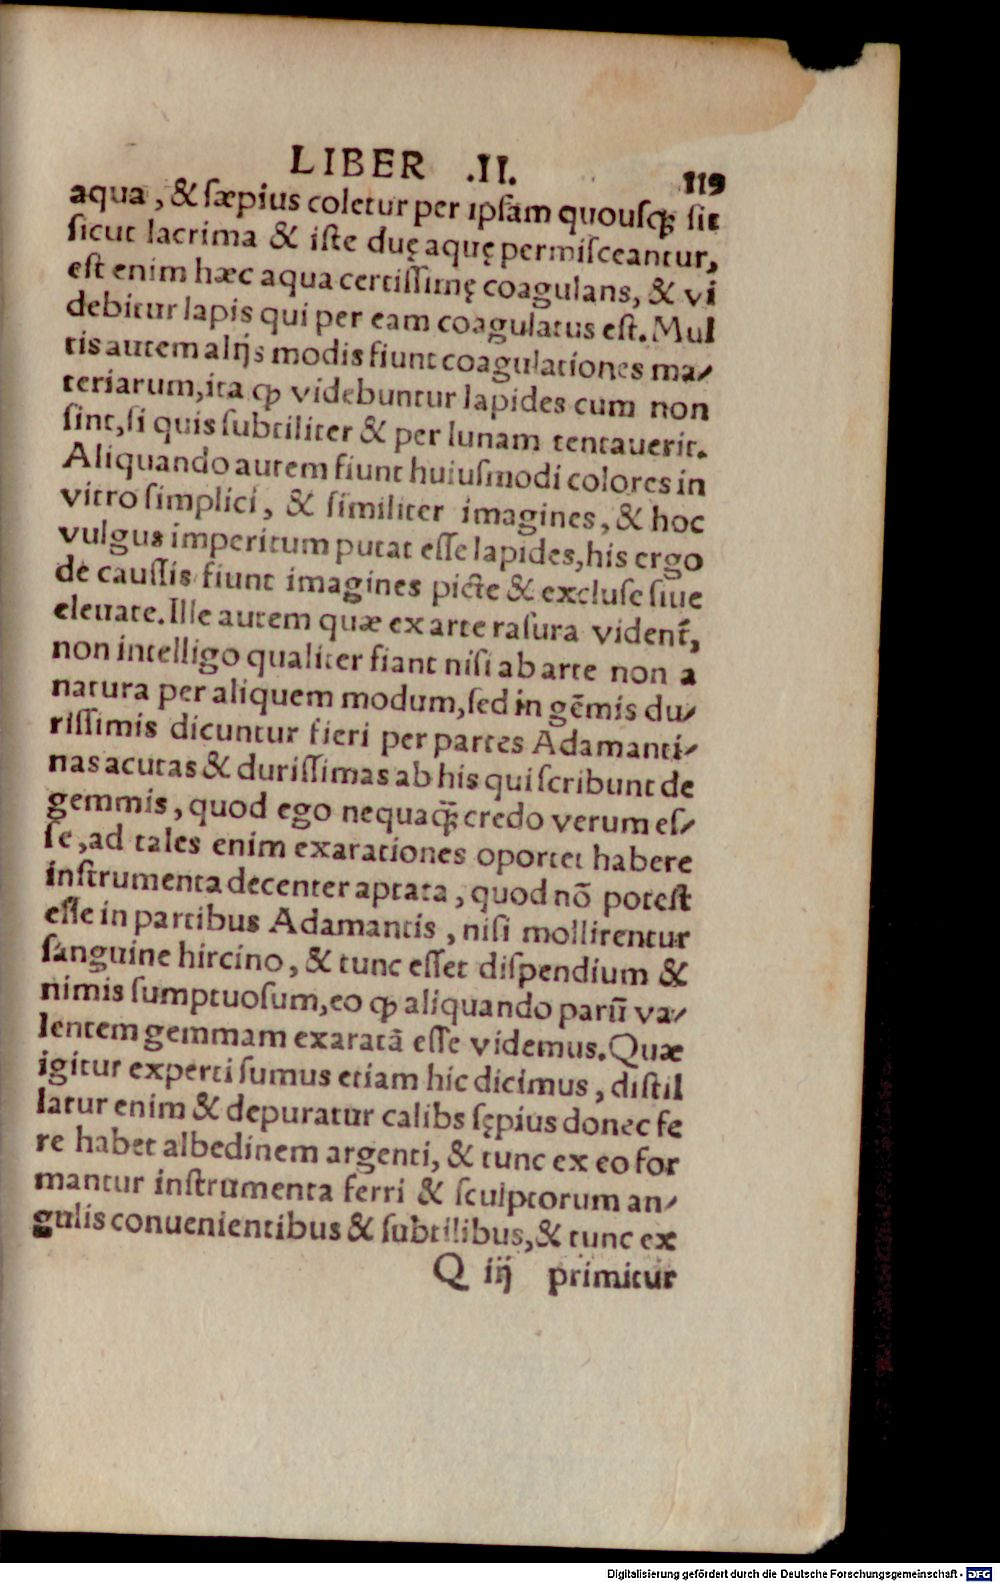 LIBER .II. 119
aqua, & sæpius coletur per ipsam quousq̃ sit
sicut lacrima & iste duę aquę permisceantur,
est enim hæc aqua certissimę coagulans, & vi
debitur lapis qui per eam coagulatus est. Mul
tis autem alijs modis fiunt coagulationes ma-
teriarum, ita ꝙ videbuntur lapides cum non
sint, si quis subtiliter & per lunam tentauerit.
Aliquando autem fiunt huiusmodi colores in
vitro simplici, & similiter imagines, & hoc
vulgus imperitum putat esse lapides, his ergo
de caussis fiunt imagines picte & excluse siue
eleuate. Ille autem quæ ex arte rasura vident̃,
non intelligo qualiter fiant nisi ab arte non a
natura per aliquem modum, sed in gẽmis du-
rissimis dicuntur fieri per partes Adamanti-
nas acutas & durissimas ab his qui scribunt de
gemmis, quod ego nequaq̃ credo verum es-
se, ad tales enim exarationes oportet habere
instrumenta decenter aptata, quod nõ potest
esse in partibus Adamantis, nisi mollirentur
sanguine hircino, & tunc esset dispendium &
nimis sumptuosum, eo ꝙ aliquando parũ va-
lentem gemmam exaratã esse videmus. Quæ
igitur experti sumus etiam hic dicimus, distil
latur enim & depuratur calibs sępius donec fe
re habet albedinem argenti, & tunc ex eo for
mantur instrumenta ferri & sculptorum an-
gulis conuenientibus & subtilibus, & tunc ex
Q iij primitur
Digitalisierung gefördert durch die Deutsche Forschungsgemeinschaft - DFG